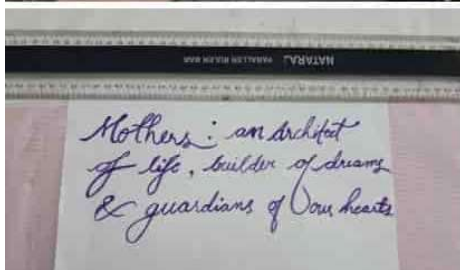 NATARAJ PARALLEL RULER BAR
Mothers : an Architect
of life, builder of dreams
& guardians of our hearts